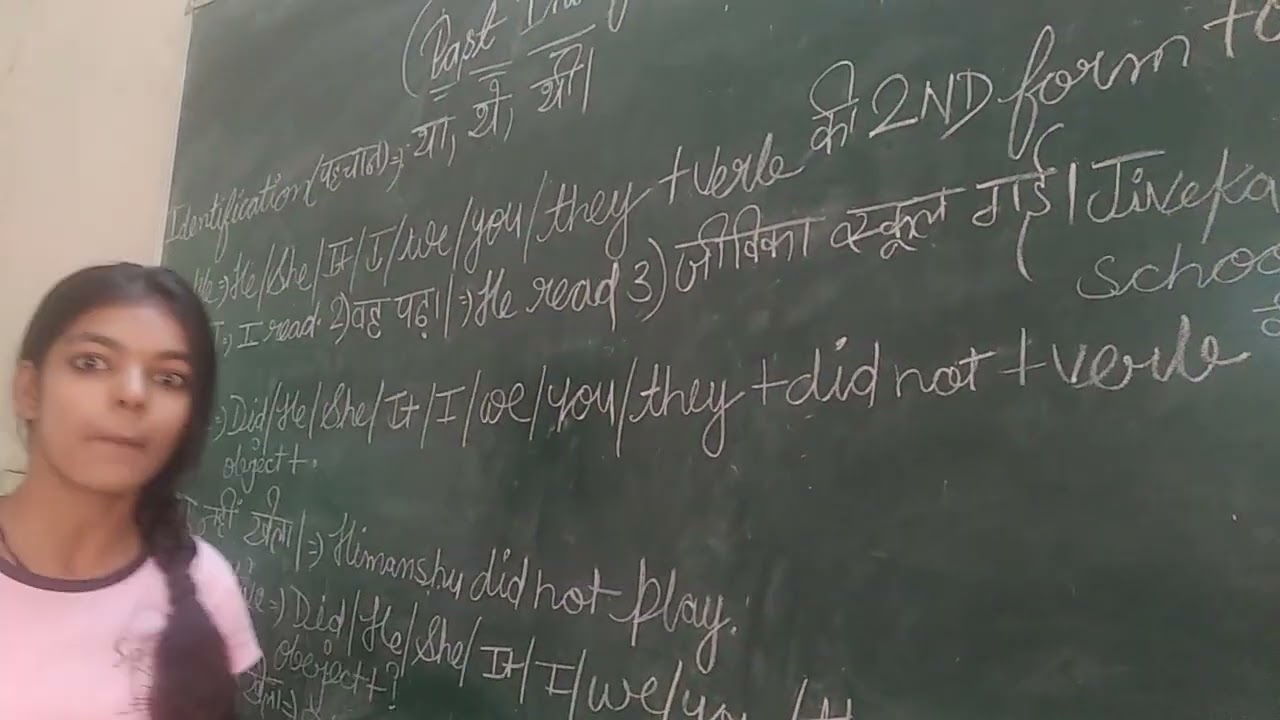 (Past
था, थे, थी।
Identification(पहचान)⇒ था, थे, थी।
⇒ He/She/It/I/we/you/they +verb की 2ND form +
⇒ I read. 2)वह पढ़ा।⇒ He read 3) जीविका स्कूल गई। Jiveka
schoo
⇒ Did/He/She/It/I/we/you/they +did not +verb
object+.
नहीं खेला।⇒ Himanshu did not play.
⇒ Did/He/She/It/I/we/you/
object+?